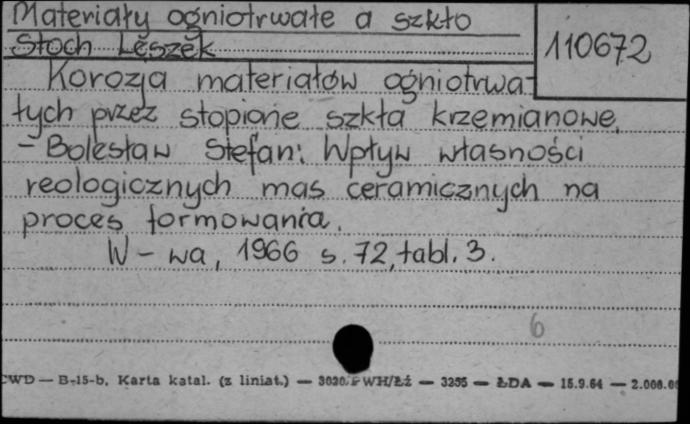 Materiały ogniotrwałe a szkło
110672
Stoch Leszek
Korozja materiałów ogniotrwa-
łych przez stopione szkła krzemianowe.
- Bolesław Stefan: Wpływ własności
reologicznych mas ceramicznych na
proces formowania.
W-wa, 1966 s. 72, tabl. 3.
6
CWD — B-15-b. Karta katal. (z liniat.) — 3020/PWH/Łż — 3255 — ŁDA — 15.9.64 — 2.000.00